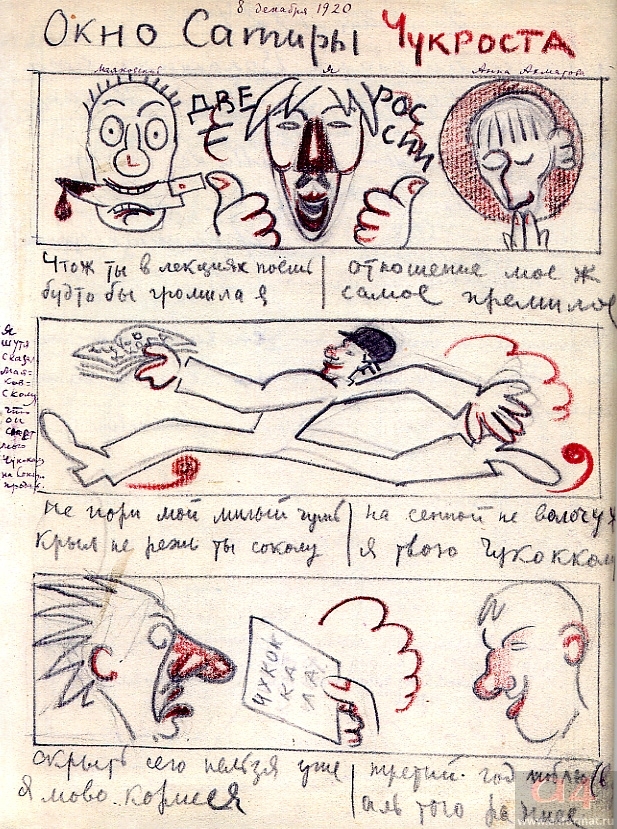 8 декабря 1920
Окно Сатиры Чукроста
Маяковский
Я
Анна Ахматова
ДВЕ РОССИИ
Чтож ты в лекциях поёшь
будто бы громила я
отношение мое ж
самое премилое
Я
шутя
сказал
Мая-
ков-
скому,
что
он
мою
Чукоккалу
не пори мой милый чушь
крыл не режь ты соколу
на сенной не волочу ж
я твою Чукоккалу
ЧУКОК
КА
ЛА
скрыть сего нельзя уже
я мово Корнея
третий год люблю (в
аль того ранее